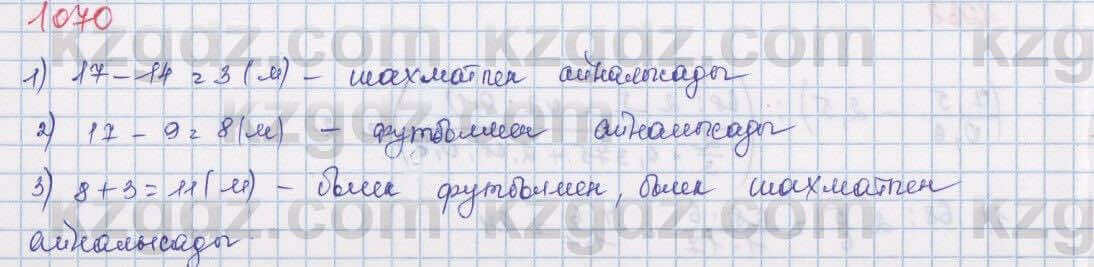 1070
1) 17 - 14 = 3 (м) - шахматпен айналысады
2) 17 - 9 = 8 (м) - футболмен айналысады
3) 8 + 3 = 11 (м) - бөлек футболмен, бөлек шахматпен
айналысады
kzgdz.com kzgdz.com